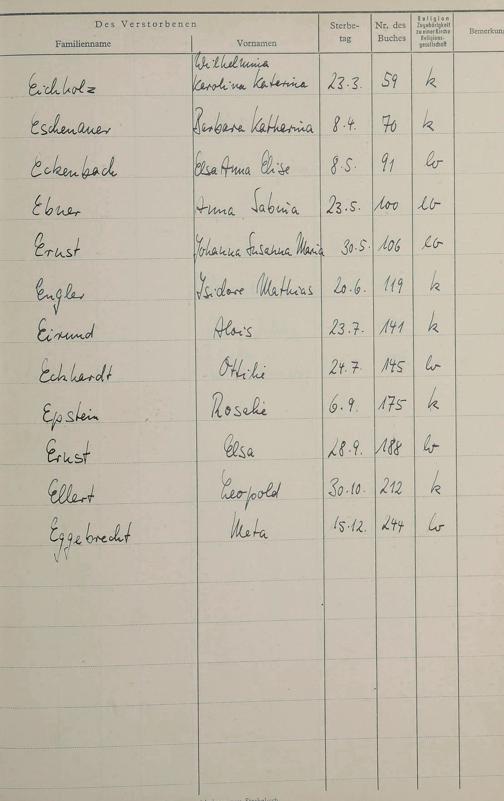 Des Verstorbenen
Familienname Vornamen Sterbe-tag Nr. des Buches Religion Zugehörigkeit zu einer Kirche Religions-gesellschaft Bemerkun
Wilhelmina
Eichholz Karolina Katerina 23.3. 59 k
Eschenauer Barbara Katharina 8.4. 70 k
Eckenbach Elsa Anna Elise 8.5. 91 ev
Ebner Anna Sabina 23.5. 100 ev
Ernst Johanna Susanna Maria 30.5. 106 ev
Engler Isidore Mathias 20.6. 119 k
Eirund Alois 23.7. 141 k
Eckhardt Ottilie 24.7. 145 ev
Epstein Rosalie 6.9. 175 k
Ernst Elsa 28.9. 188 ev
Ellert Leopold 30.10. 212 k
Eggebrecht Meta 15.12. 244 ev